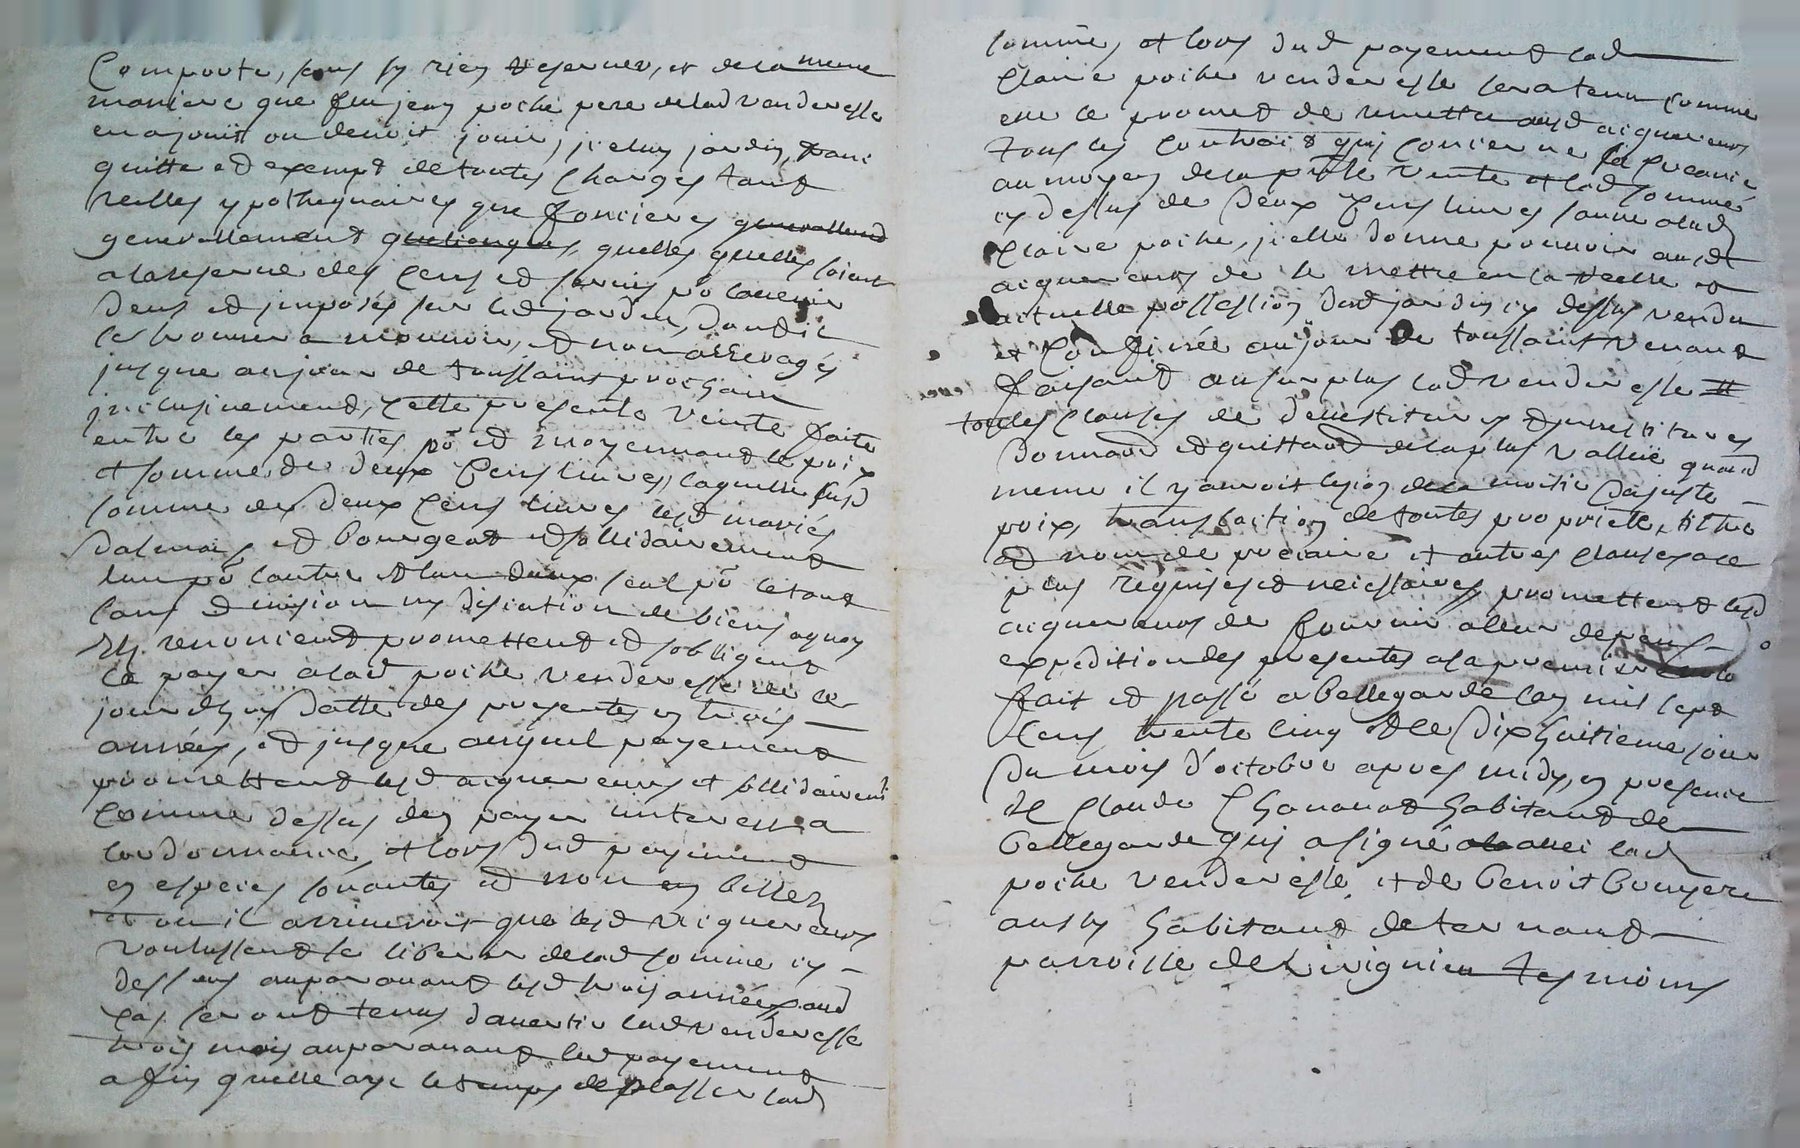 Comporte, sans sy rien reserver, et de la meme
maniere que feu jean poche pere de lad venderesse
en a jouit ou devoit jouir, jcelluy jardin, franc
quitte et exempt de toutes charges tant
reelles ypothequaires que foncieres generallem
generallement quelconques, quelles quelles soient
a la reserve des cens et servis po lavenir
deus et jmposés sur led jardin, dont il
se trouvera mouvoir, et non arrerages
jusque au jour de toussaint prochain
jnclusivement, cette presente vente faite
entre les parties po et moyennant le prix
et somme de deux cens livres, laquelle susd
somme de deux cens livres lesd mariés
dalmais et bourgeat et sollidairement
lun po lautre et lun deux seul po le tout
sans division ny disention de biens aquoy
Ils renoncent promettent et sobligent
la payer a lad poche venderesse de ce
jourdhuy datte des presentes en trois
années, et jusque auquel payement
promettent lesd aiquereurs et sollidairemt
comme dessus den payer linterest a
lordonnance, et lors dud payement
en especes sonantes et non en billets
et ou il arriveroit que lesd aiquereurs
voulussent se liberer de lad somme cy
dessus auparavant lesd trois années, aud
cas seront tenus davertir lad venderesse
trois mois auparavant led payement
afin quelle aye le temps de plasser lad
somme, et lors dud payement lad
Claire poche venderesse sera tenue comme
elle le promet de remettre ausd aiquereurs
tous les contrais quy concerne sa precaire
au moyen de la pnte vente et lad somme
cy dessus de deux cens livres sauve a lad
Claire poche, jcelle donne pouvoir ausd
aiquereurs de se mettre en la reelle et
actuelle possession dud jardin cy dessus vendu
et confinée au jour de toussaint venant
faisant au surplus lad venderesse
touttes clauses de devestitures et jnvestitures
donnant et quittant de la plus vallue quand
meme il y auroit lesion de la moitié du juste
prix, translaction de toutes proprieté, tiltre
et nom de precaire et autres clauses a ce
plus requises et necessaires, promettent lesd
aiquereurs de fournir a leur depens
expedition des presentes a la premiere
fait et passé a bellegarde lan mil sept
cens trente cinq et le dixhuitieme jour
du mois d'octobre apres midy, en presence
de Claude Chananat habitant de
bellegarde quy a signé avec lad
poche venderesse, et de benoit bruyere
aussy habitant de ternant
parroisse de Livignieu tesmoins